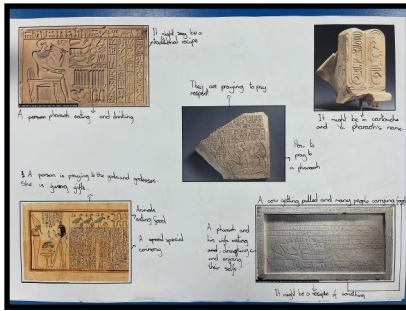 It might say be a
traditional recipe
A person pharaoh eating and drinking
They are praying to pay
respect
It might be a cartouche
and the pharaoh's name.
How to
pray to
a pharaoh
A person is praying to the gods and goddesses.
She is giving gifts.
Animals
eating food
A special
A pharaoh and
his wife eating
and
and enjoying
their selfs
A cow getting pulled and many people carrying food
It might be a recipe of something